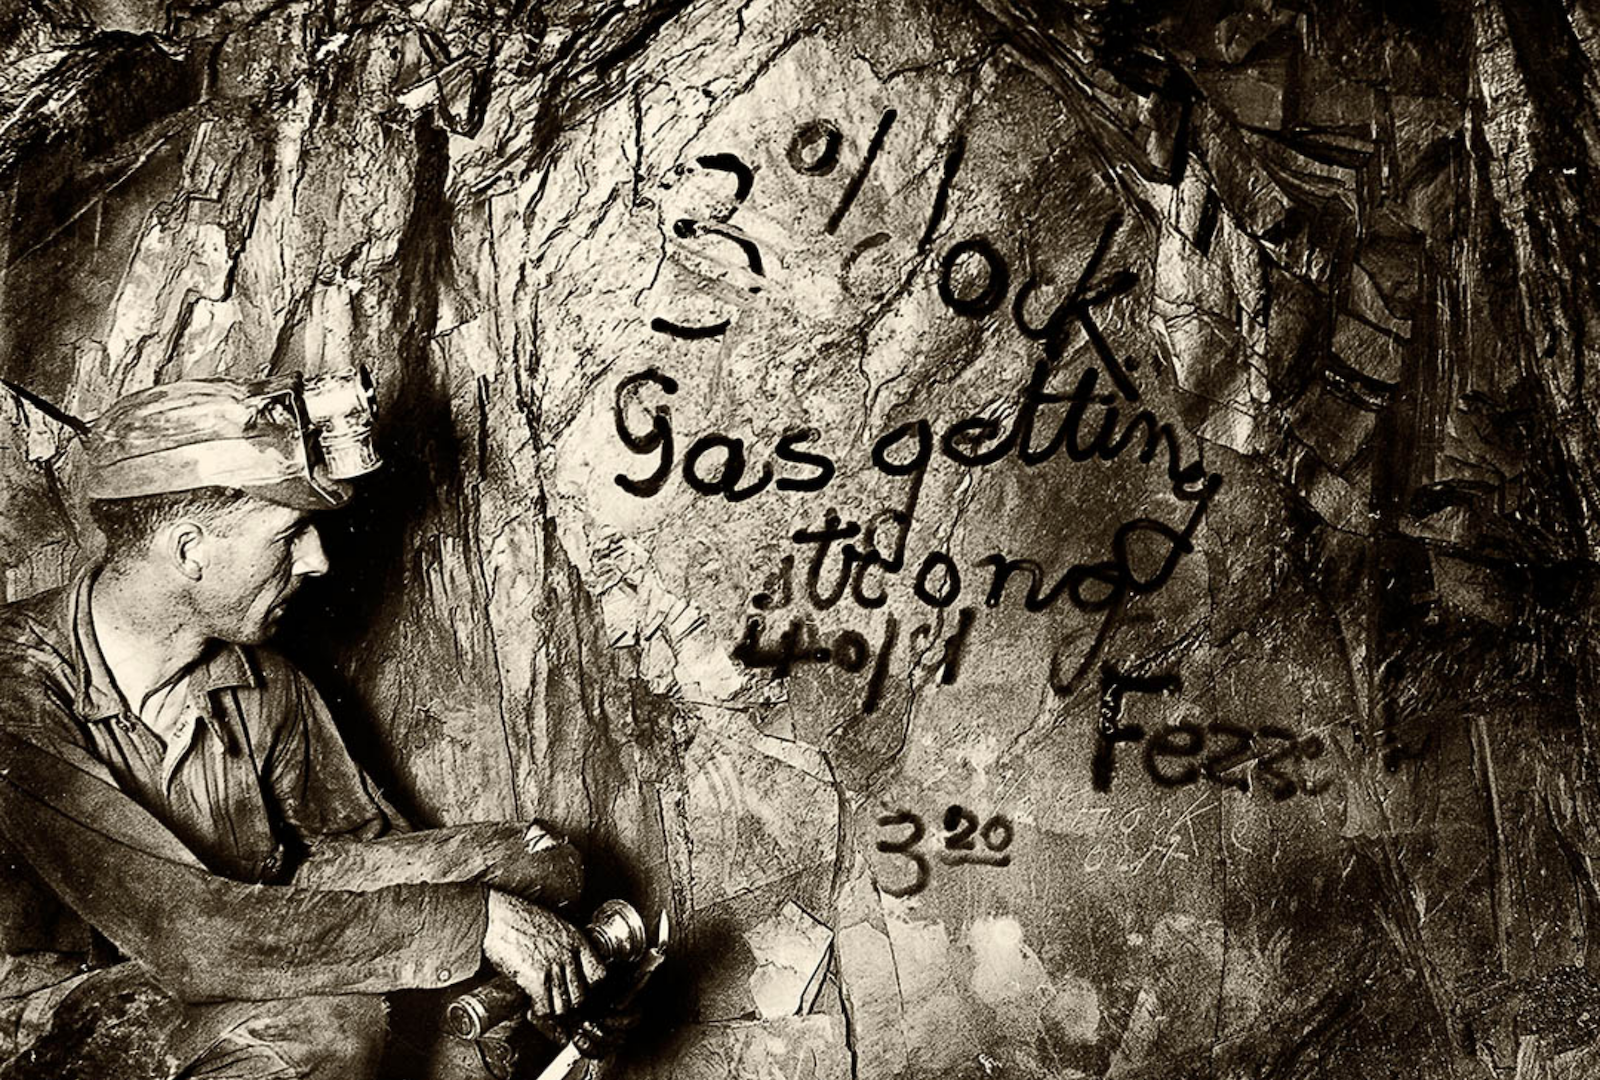 3 o/clock.
Gas getting
strong
Fezz
3 20